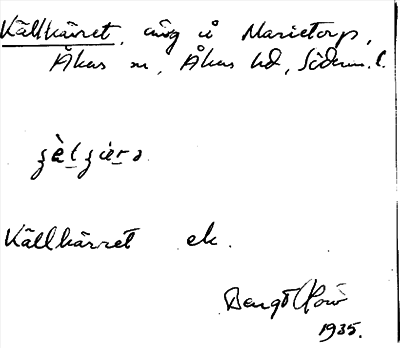 Källkärret, äng i Marietorp,
Åkers sn, Åkers hd, Söderm. l.
Källkärret ek.
Bengt
1935.